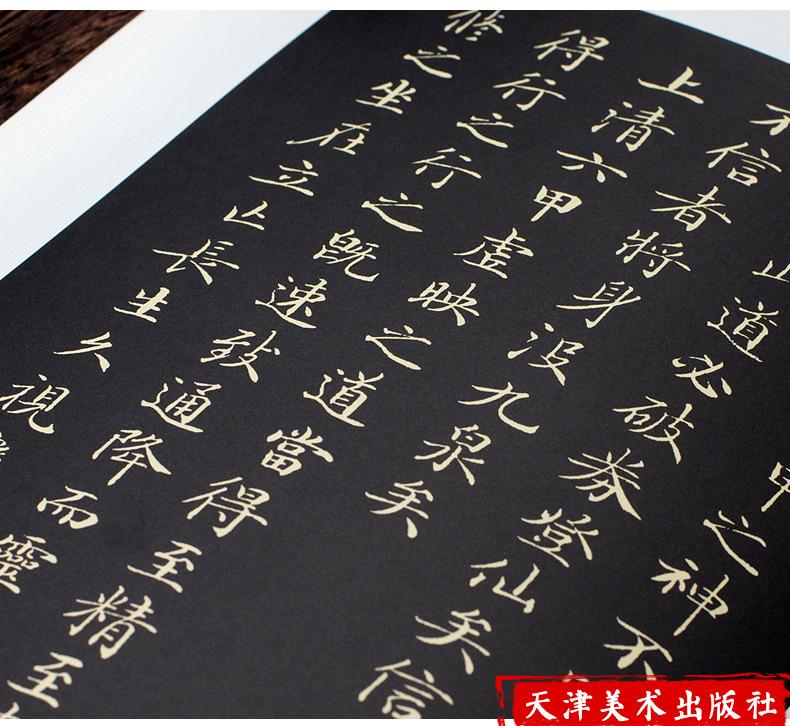 甲之神不
止道必破券登仙矣信
不信者將身没九泉矣
上清六甲虛映之道當得至精至
得行之行之既速致通降而靈
修之坐在立亡長生久視
天津美术出版社